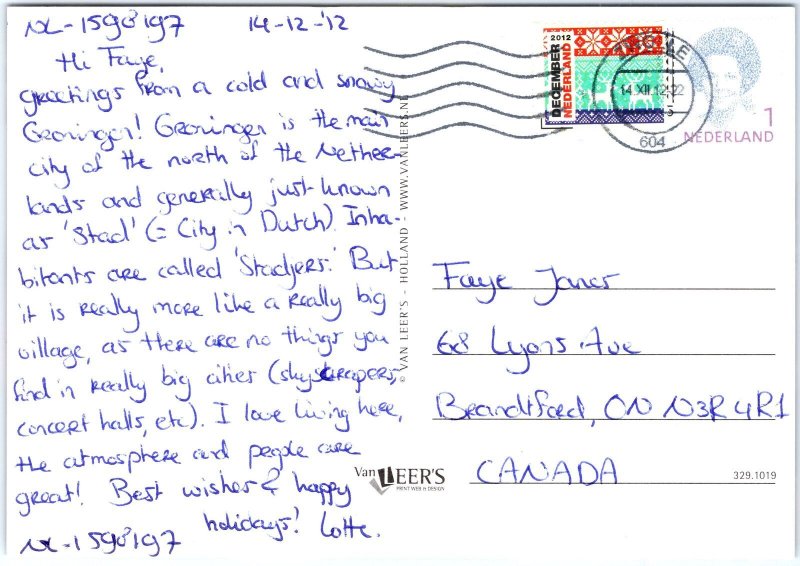 NL-1598197 14-12-'12
Hi Faye,
greetings from a cold and snowy
Groningen! Groningen is the main
city of the north of the Nether-
lands and generally just known
as 'Stad' (= City in Dutch). Inha-
bitants are called 'Stadjers.' But
it is really more like a really big
village, as there are no things you
find in really big cities (skyscrapers,
concert halls, etc). I love living here,
the atmosphere and people are
great! Best wishes & happy
holidays! Lotte.
NL-1598197
© VAN LEER'S - HOLLAND - WWW.VANLEERS.NL
DECEMBER 2012
NEDERLAND
14 XII.12-22
604
1
NEDERLAND
Faye Jones
68 Lyons Ave
Brandtford, ON N3R 4R1
CANADA
Van LEER'S
PRINT WEB & DESIGN
329.1019